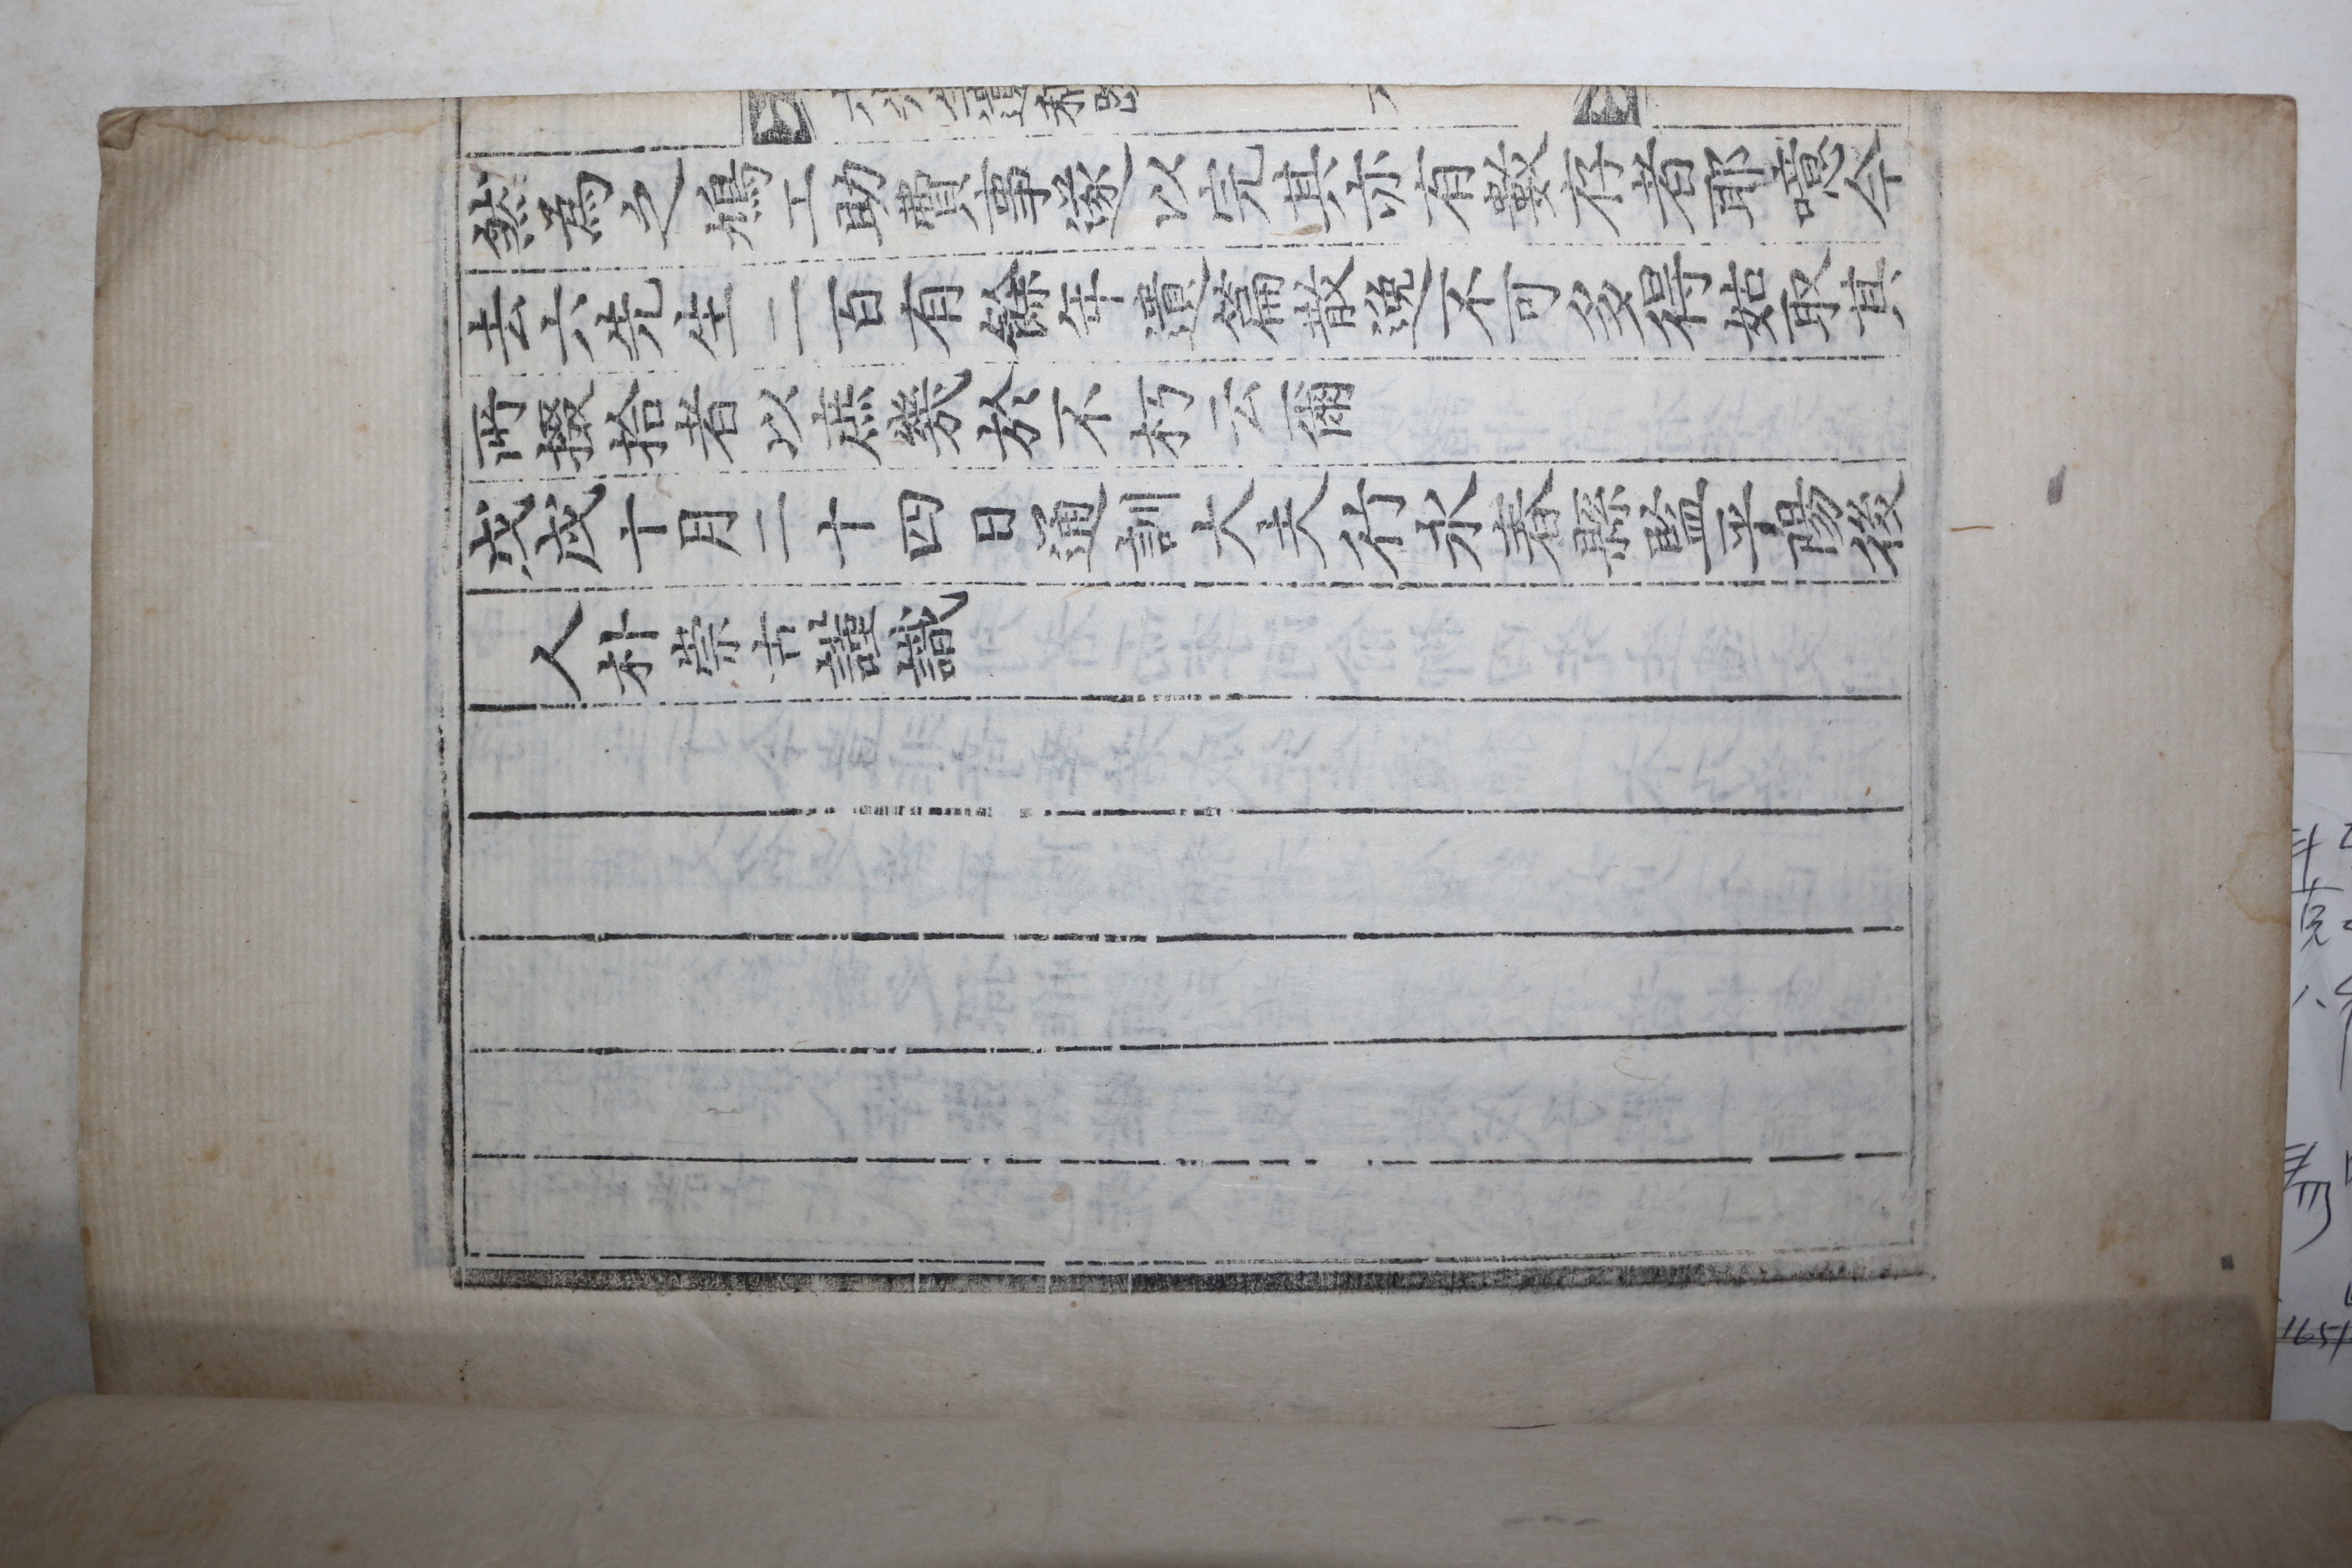 然爲之鳩工助費事遂以完其亦有數存者耶噫今
去六先生二百有餘年遺篇散逸不可多得姑取其
所掇拾者以庶幾於不朽云爾
戊戌十月二十四日通訓大夫行永春縣監平陽後
人朴崇古謹識